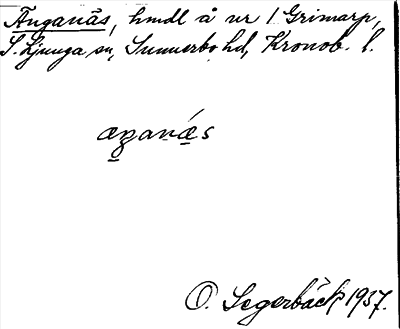 Änganäs, hmdl å nr 1 Grimarp,
S. Ljunga sn, Sunnerbo hd, Kronob. l.
O. Segerbäck 1937.